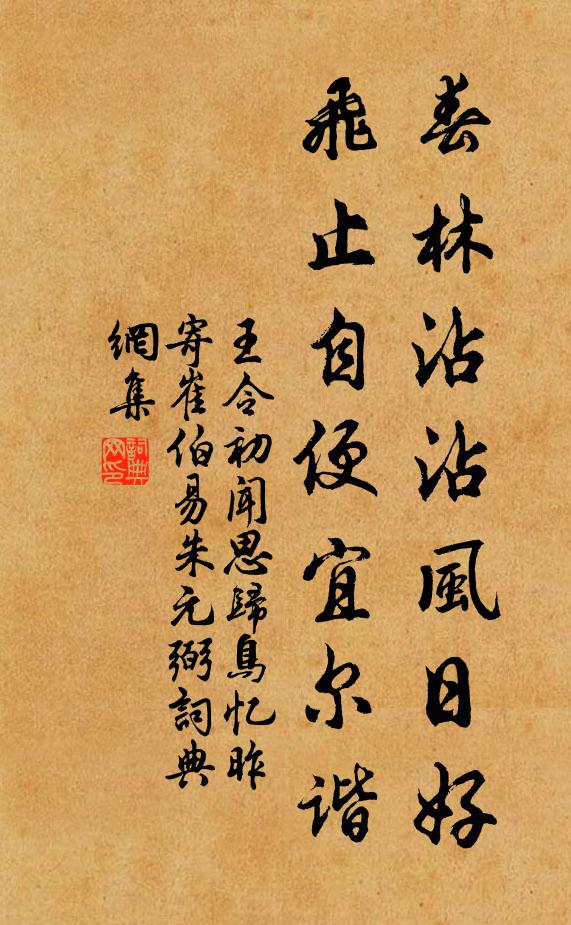 春林沾沾風日好
飛止自便宜尔谐
王令初闻思歸鳥忆昨
寄崔伯易朱元弼詞典
網集
詞典
网印